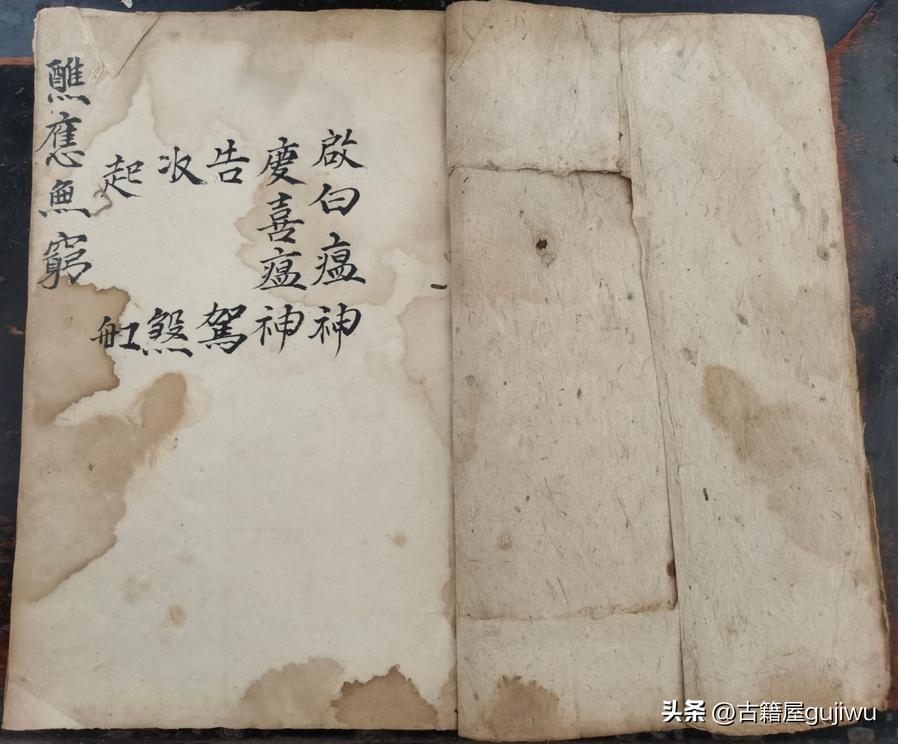 啟白瘟神
慶喜瘟神
告駕
收煞
起舡
醮應魚窮
头条 @古籍屋gujiwu